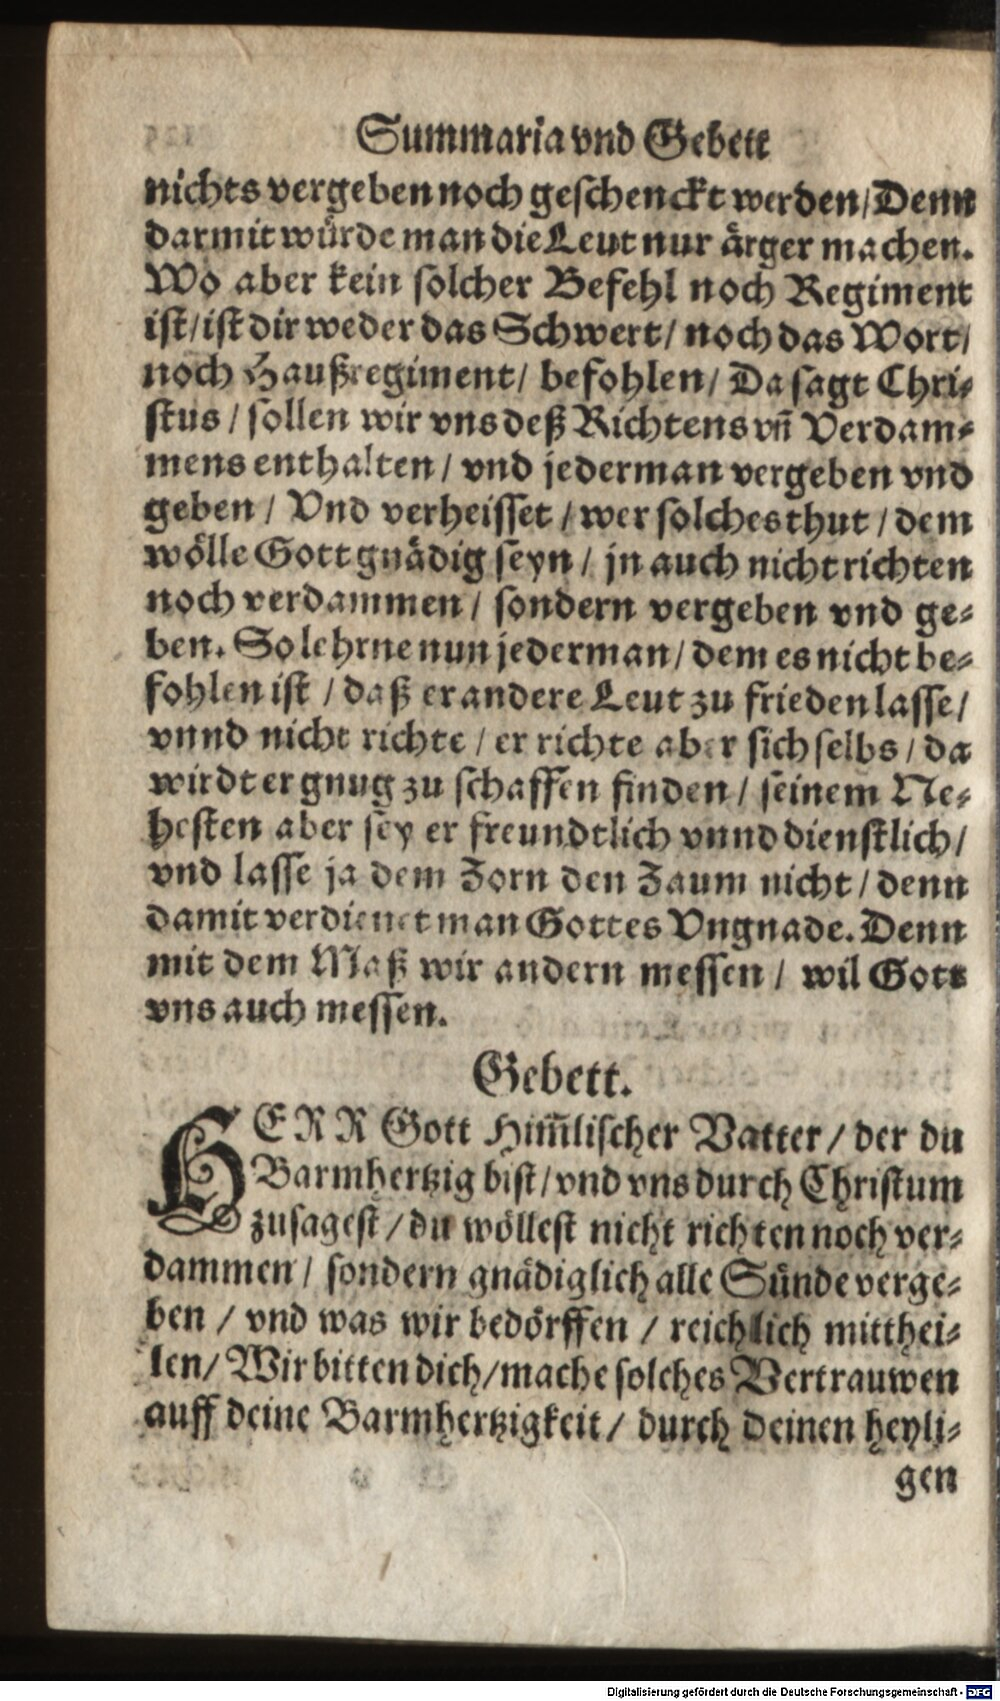 Summaria vnd Gebett
nichts vergeben noch geschenckt werden/ Denn
darmit würde man die Leut nur ärger machen.
Wo aber kein solcher Befehl noch Regiment
ist/ ist dir weder das Schwert/ noch das Wort/
noch Haußregiment/ befohlen/ Da sagt Chri-
stus / sollen wir vns deß Richtens vñ Verdam-
mens enthalten / vnd jederman vergeben vnd
geben / Vnd verheisset / wer solches thut / dem
wölle Gott gnädig seyn / jn auch nicht richten
noch verdammen / sondern vergeben vnd ge-
ben. So lehrne nun jederman / dem es nicht be-
fohlen ist / daß er andere Leut zu frieden lasse/
vnnd nicht richte / er richte aber sich selbs / da
wirdt er gnug zu schaffen finden / seinem Ne-
hesten aber sey er freundtlich vnnd dienstlich/
vnd lasse ja dem Zorn den Zaum nicht / denn
damit verdienet man Gottes Vngnade. Denn
mit dem Maß wir andern messen / wil Gott
vns auch messen.
Gebett.
HERR Gott Him̃lischer Vatter / der du
Barmhertzig bist/ vnd vns durch Christum
zusagest / du wöllest nicht richten noch ver-
dammen / sondern gnädiglich alle Sünde verge-
ben / vnd was wir bedörffen / reichlich mitthei-
len/ Wir bitten dich/ mache solches Vertrauwen
auff deine Barmhertzigkeit / durch deinen heyli-
gen
Digitalisierung gefördert durch die Deutsche Forschungsgemeinschaft - DFG